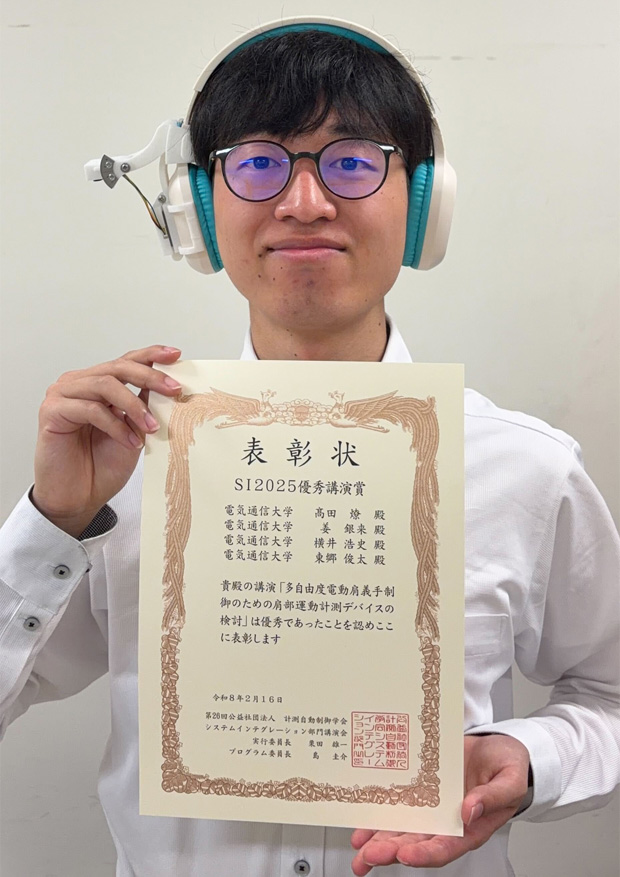 表彰状
SI2025優秀講演賞
電気通信大学 髙田 燎 殿
電気通信大学 姜 銀来 殿
電気通信大学 横井 浩史 殿
電気通信大学 東郷 俊太 殿
貴殿の講演「多自由度電動肩義手制
御のための肩部運動計測デバイスの
検討」は優秀であったことを認めここ
に表彰します
令和8年2月16日
第26回公益社団法人 計測自動制御学会
システムインテグレーション部門講演会
実行委員長 栗田 雄一
プログラム委員長 島 圭介